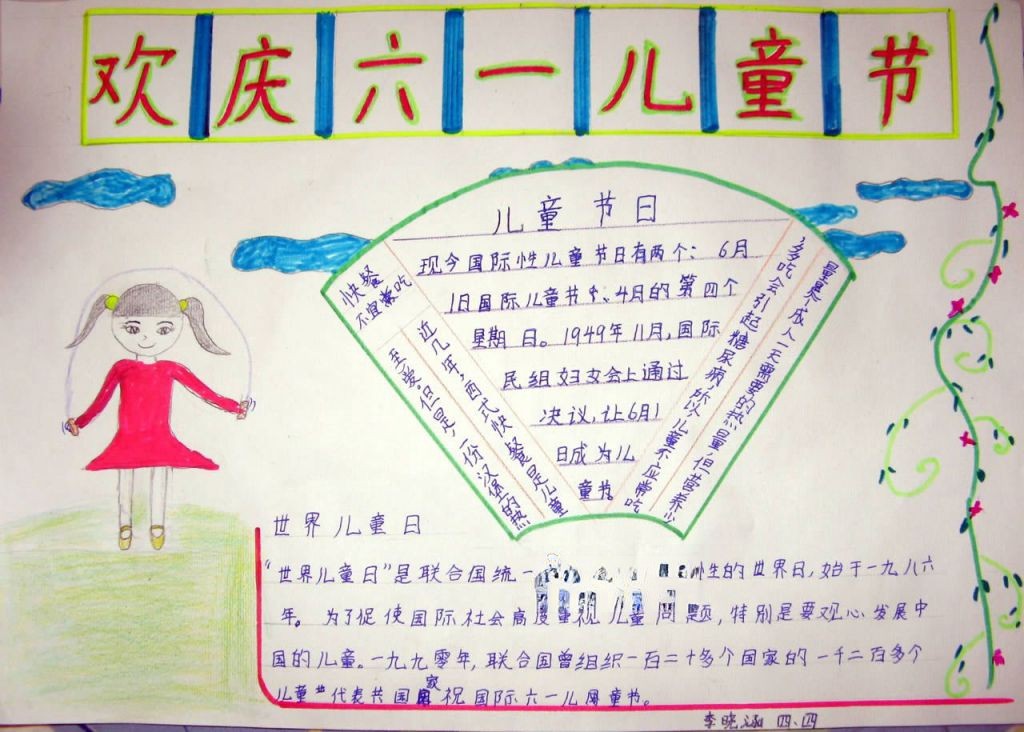 欢庆六一儿童节
儿童节日
现今国际性儿童节日有两个：6月
1日国际儿童节和、4月的第四个
星期日。1949年11月,国际
民组妇女会上通过
决议,让6月1
日成为儿
童节
快餐
不宜常吃
近几年,西式快餐是儿童
至爱。但是,一份汉堡的热
量是成人一天需要的热量,但营养少
,多吃会引起糖尿病,所以儿童不应常吃
世界儿童日
“世界儿童日”是联合国统一 性的世界日,始于一九八六
年。为了促使国际社会高度重视儿童问题,特别是要观心发展中
国的儿童。一九九零年,联合国曾组织一百二十多个国家的一千二百多个
儿童 代表共国家祝国际六一儿 童节。
李晓涵 四、四